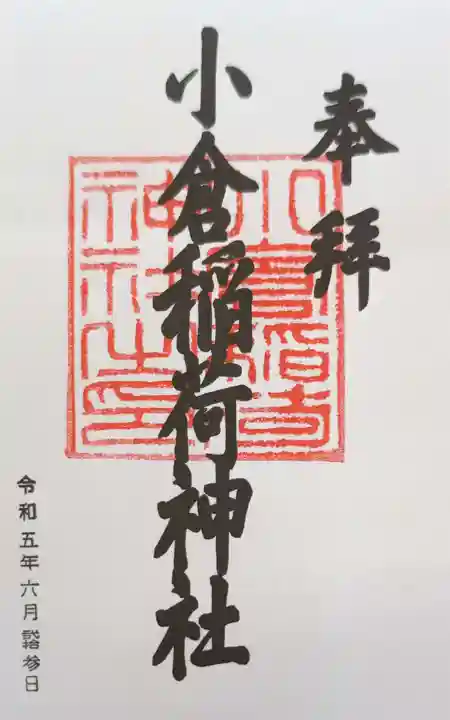 奉拝
小倉稲荷神社
令和五年六月 参日